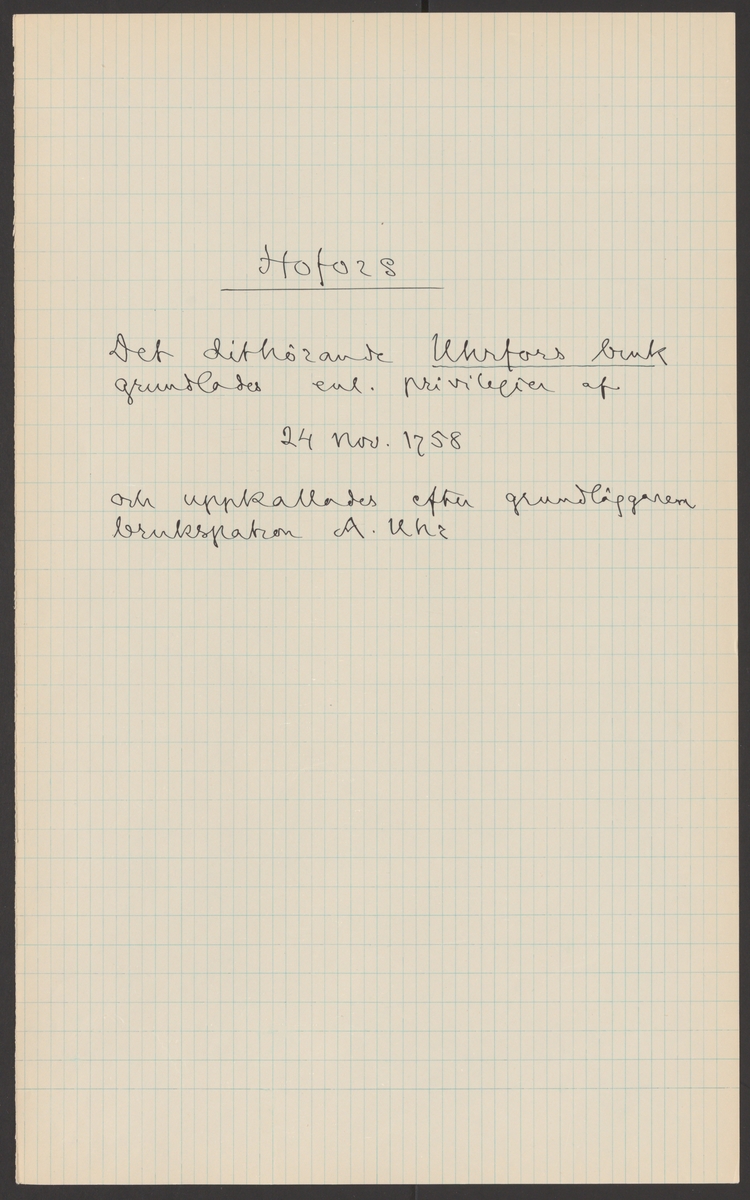 Hofors
Det dithörande Uhrfors bruk
grundlades enl. privilegier af
24 Nov. 1758
och uppkallades efter grundläggaren
brukspatron A. Uhr